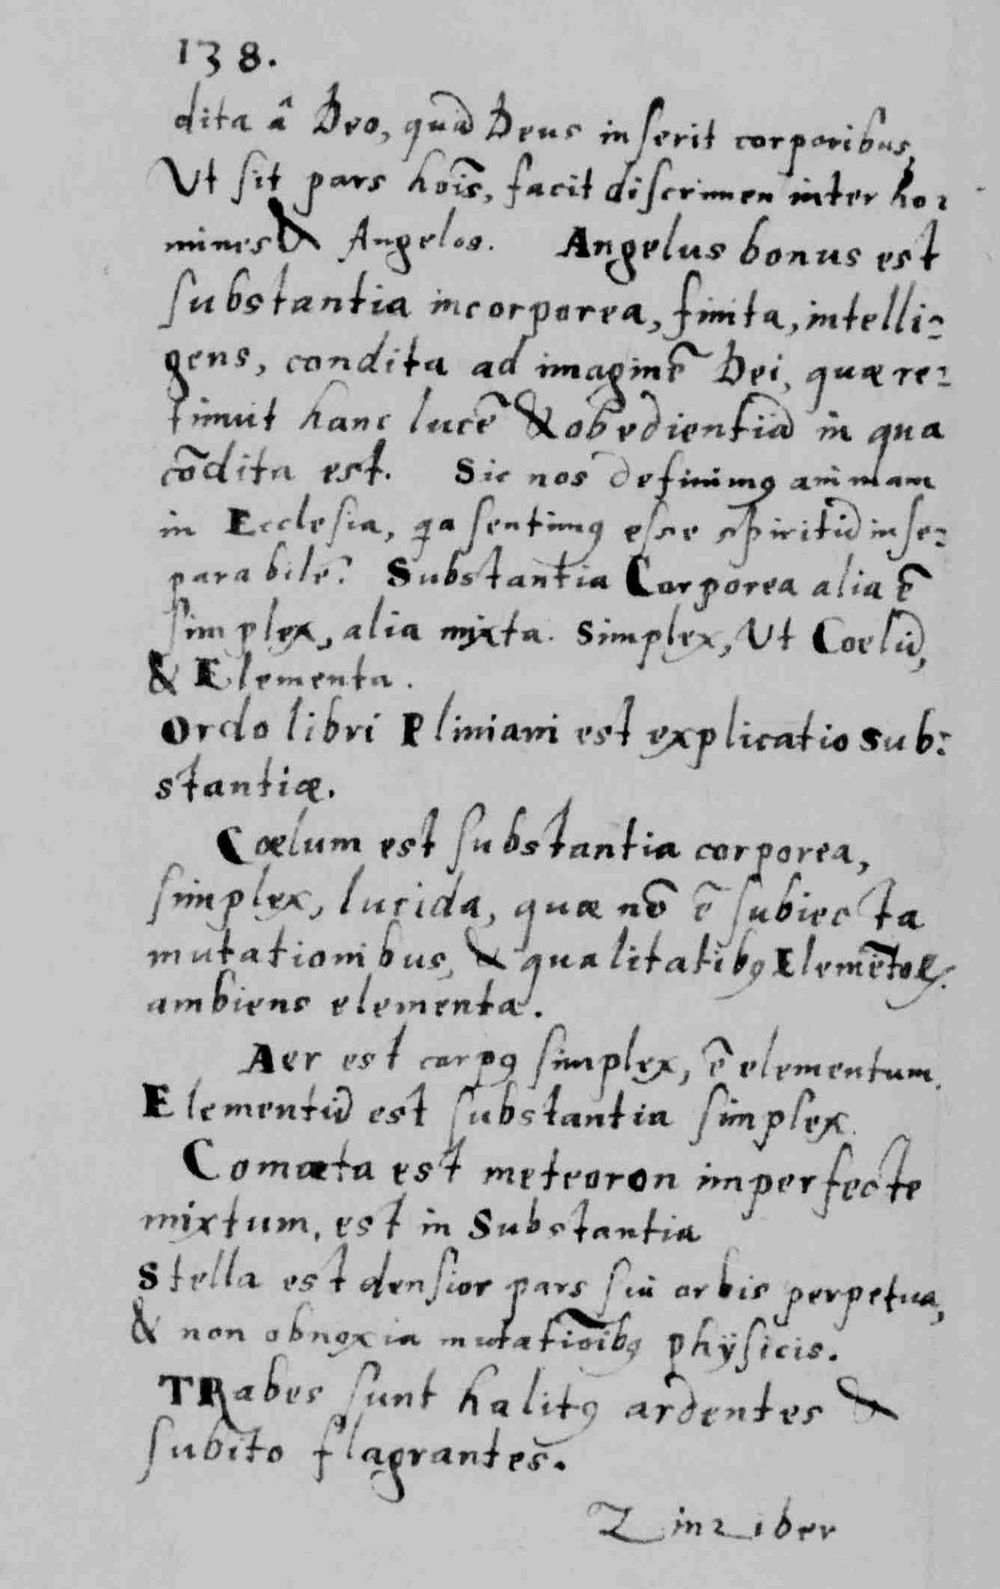 138.
dita â Deo, quā Deus inserit corporibus,
Ut sit pars hoīs, facit discrimen inter ho-
mines & Angelos. Angelus bonus est
substantia incorporea, finita, intelli-
gens, condita ad imaginē Dei, quæ re-
tinuit hanc lucē & obedientiā in qua
cōdita est. Sic nos definimꝯ animam
in Ecclesia, qa sentimꝯ esse spiritū inse-
parabilē. Substantia Corporea alia ē
simplex, alia mixta. Simplex, Ut Coelū,
& Elementa.
Ordo libri Pliniani est explicatio sub-
stantiæ.
Cœlum est substantia corporea,
simplex, lucida, quæ nō ē subiecta
mutationibus, & qualitatibꝯ Elemētoꝝ.
ambiens elementa.
Aer est corpꝯ simplex, ē elementum.
Elementū est substantia simplex.
Comæta est meteoron imperfecte
mixtum, est in Substantia
Stella est densior pars sui orbis perpetua,
& non obnoxia mutatiōibꝯ phÿsicis.
TRabes sunt halitꝯ ardentes &
subito flagrantes.
Zinziber